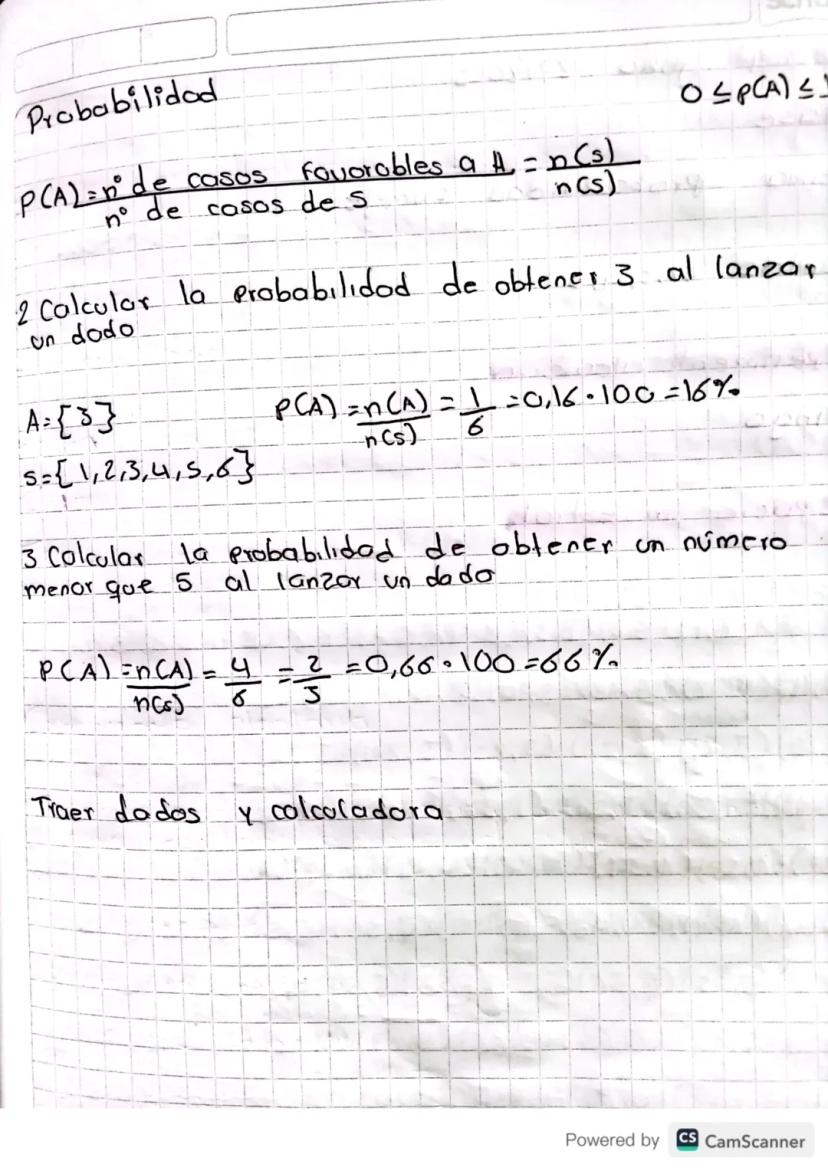 Probabilidad
0 ≤ p(A) ≤ 1
P(A) = n° de casos favorables a A = n(s)
n° de casos de s n(s)
2 Calcular la probabilidad de obtener 3 al lanzar
un dado
A = {3}
P(A) = n(A) = 1 = 0,16 · 100 = 16%
n(s) 6
s = {1,2,3,4,5,6}
3 Calcular la probabilidad de obtener un número
menor que 5 al lanzar un dado
P(A) = n(A) = 4 = 2 = 0,66 · 100 = 66%
n(s) 6 3
Traer dados y calculadora
Powered by CS CamScanner